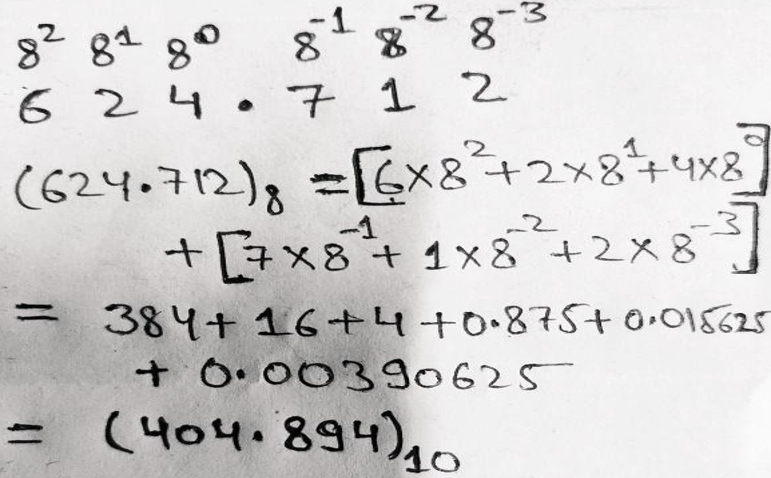 8² 8¹ 8⁰ 8⁻¹ 8⁻² 8⁻³
6 2 4 . 7 1 2
(624.712)₈ = [6×8²+2×8¹+4×8⁰]
+ [7×8⁻¹+ 1×8⁻²+2×8⁻³]
= 384+16+4+0.875+0.015625
+ 0.00390625
= (404.894)₁₀